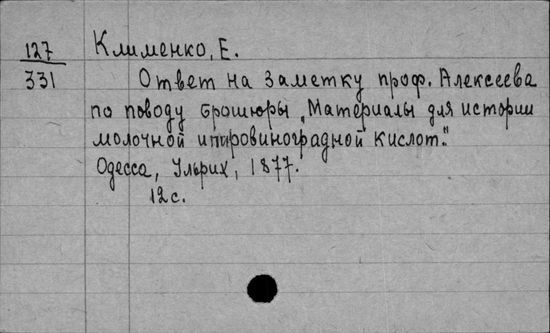 127
331
Клименко, Е.
Ответ на заметку проф. Алексеева
по поводу брошюры „Материалы для истории
молочной ипировиноградной кислот."
Одесса, Ульрих, 1877.
12 с.